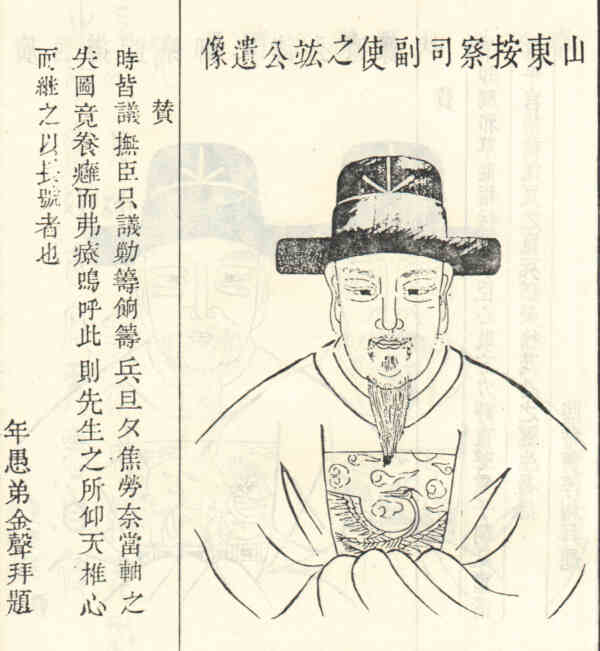 山東按察司副使之竑公遺像
贊
時皆議撫臣只議勦籌餉籌兵旦夕焦勞奈當軸之
失圖竟養癰而弗療嗚呼此則先生之所仰天椎心
而繼之以長號者也
年愚弟金聲拜題